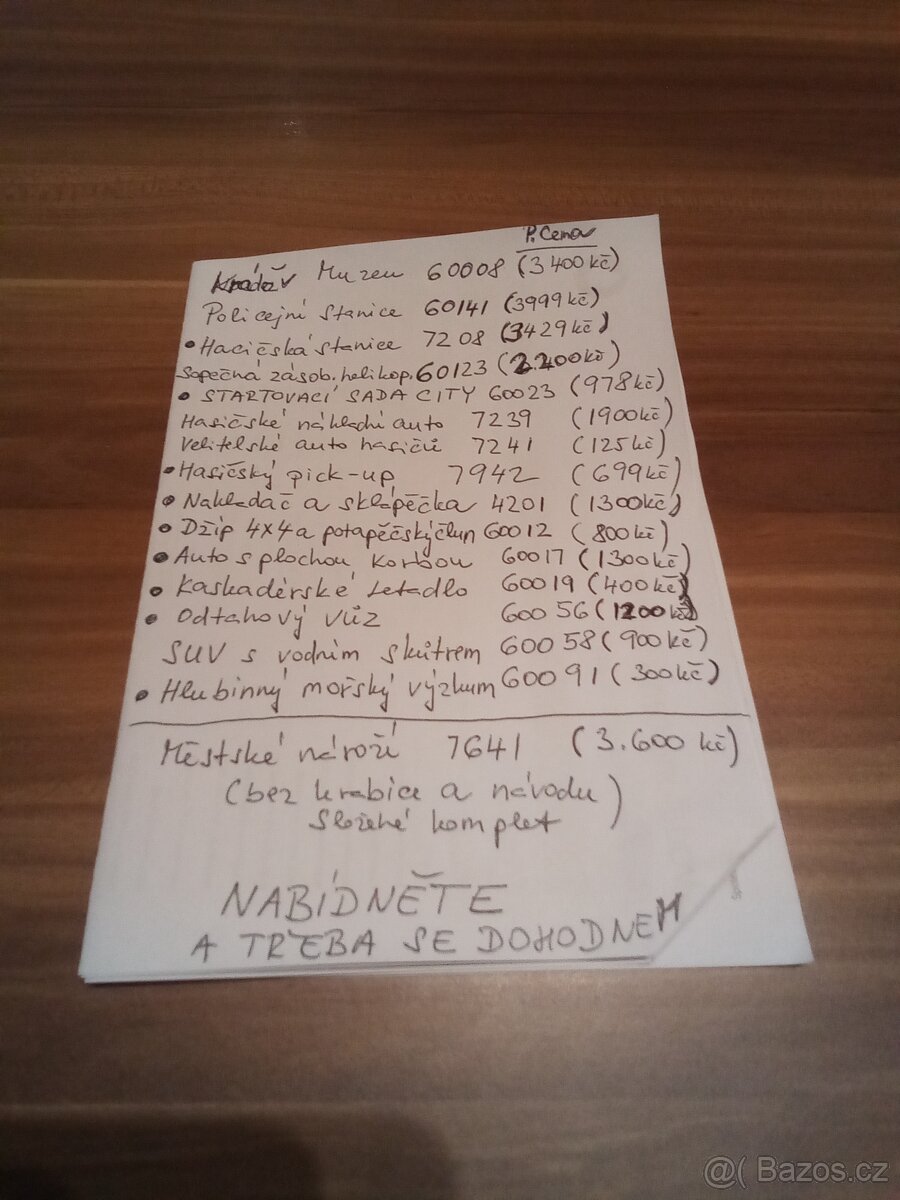 P. Cena
Krádež v Muzeu 60008 (3 400 kč)
Policejní stanice 60141 (3999 kč)
• Hacičská stanice 7208 (3429 kč)
Sopečná zásob. helikop. 60123 (2.200 kč)
• STARTOVACÍ SADA CITY 60023 (978 kč)
Hasičské nákladní auto 7239 (1900 kč)
Velitelské auto hasičů 7241 (125 kč)
• Hasičský pick-up 7942 (699 kč)
• Nakladač a sklápěčka 4201 (1300 kč)
• Džíp 4x4 a potapěčský člun 60012 (800 kč)
• Auto s plochou korbou 60017 (1300 kč)
• Kaskadérské letadlo 60019 (400 kč)
• Odtahový vůz 60056 (1200 kč)
SUV s vodním skůtrem 60058 (900 kč)
• Hlubinný mořský výzkum 60091 (300 kč)
Městské nároží 7641 (3.600 kč)
(bez krabice a návodu)
složené komplet
NABÍDNĚTE
A TŘEBA SE DOHODNEM
@( Bazos.cz